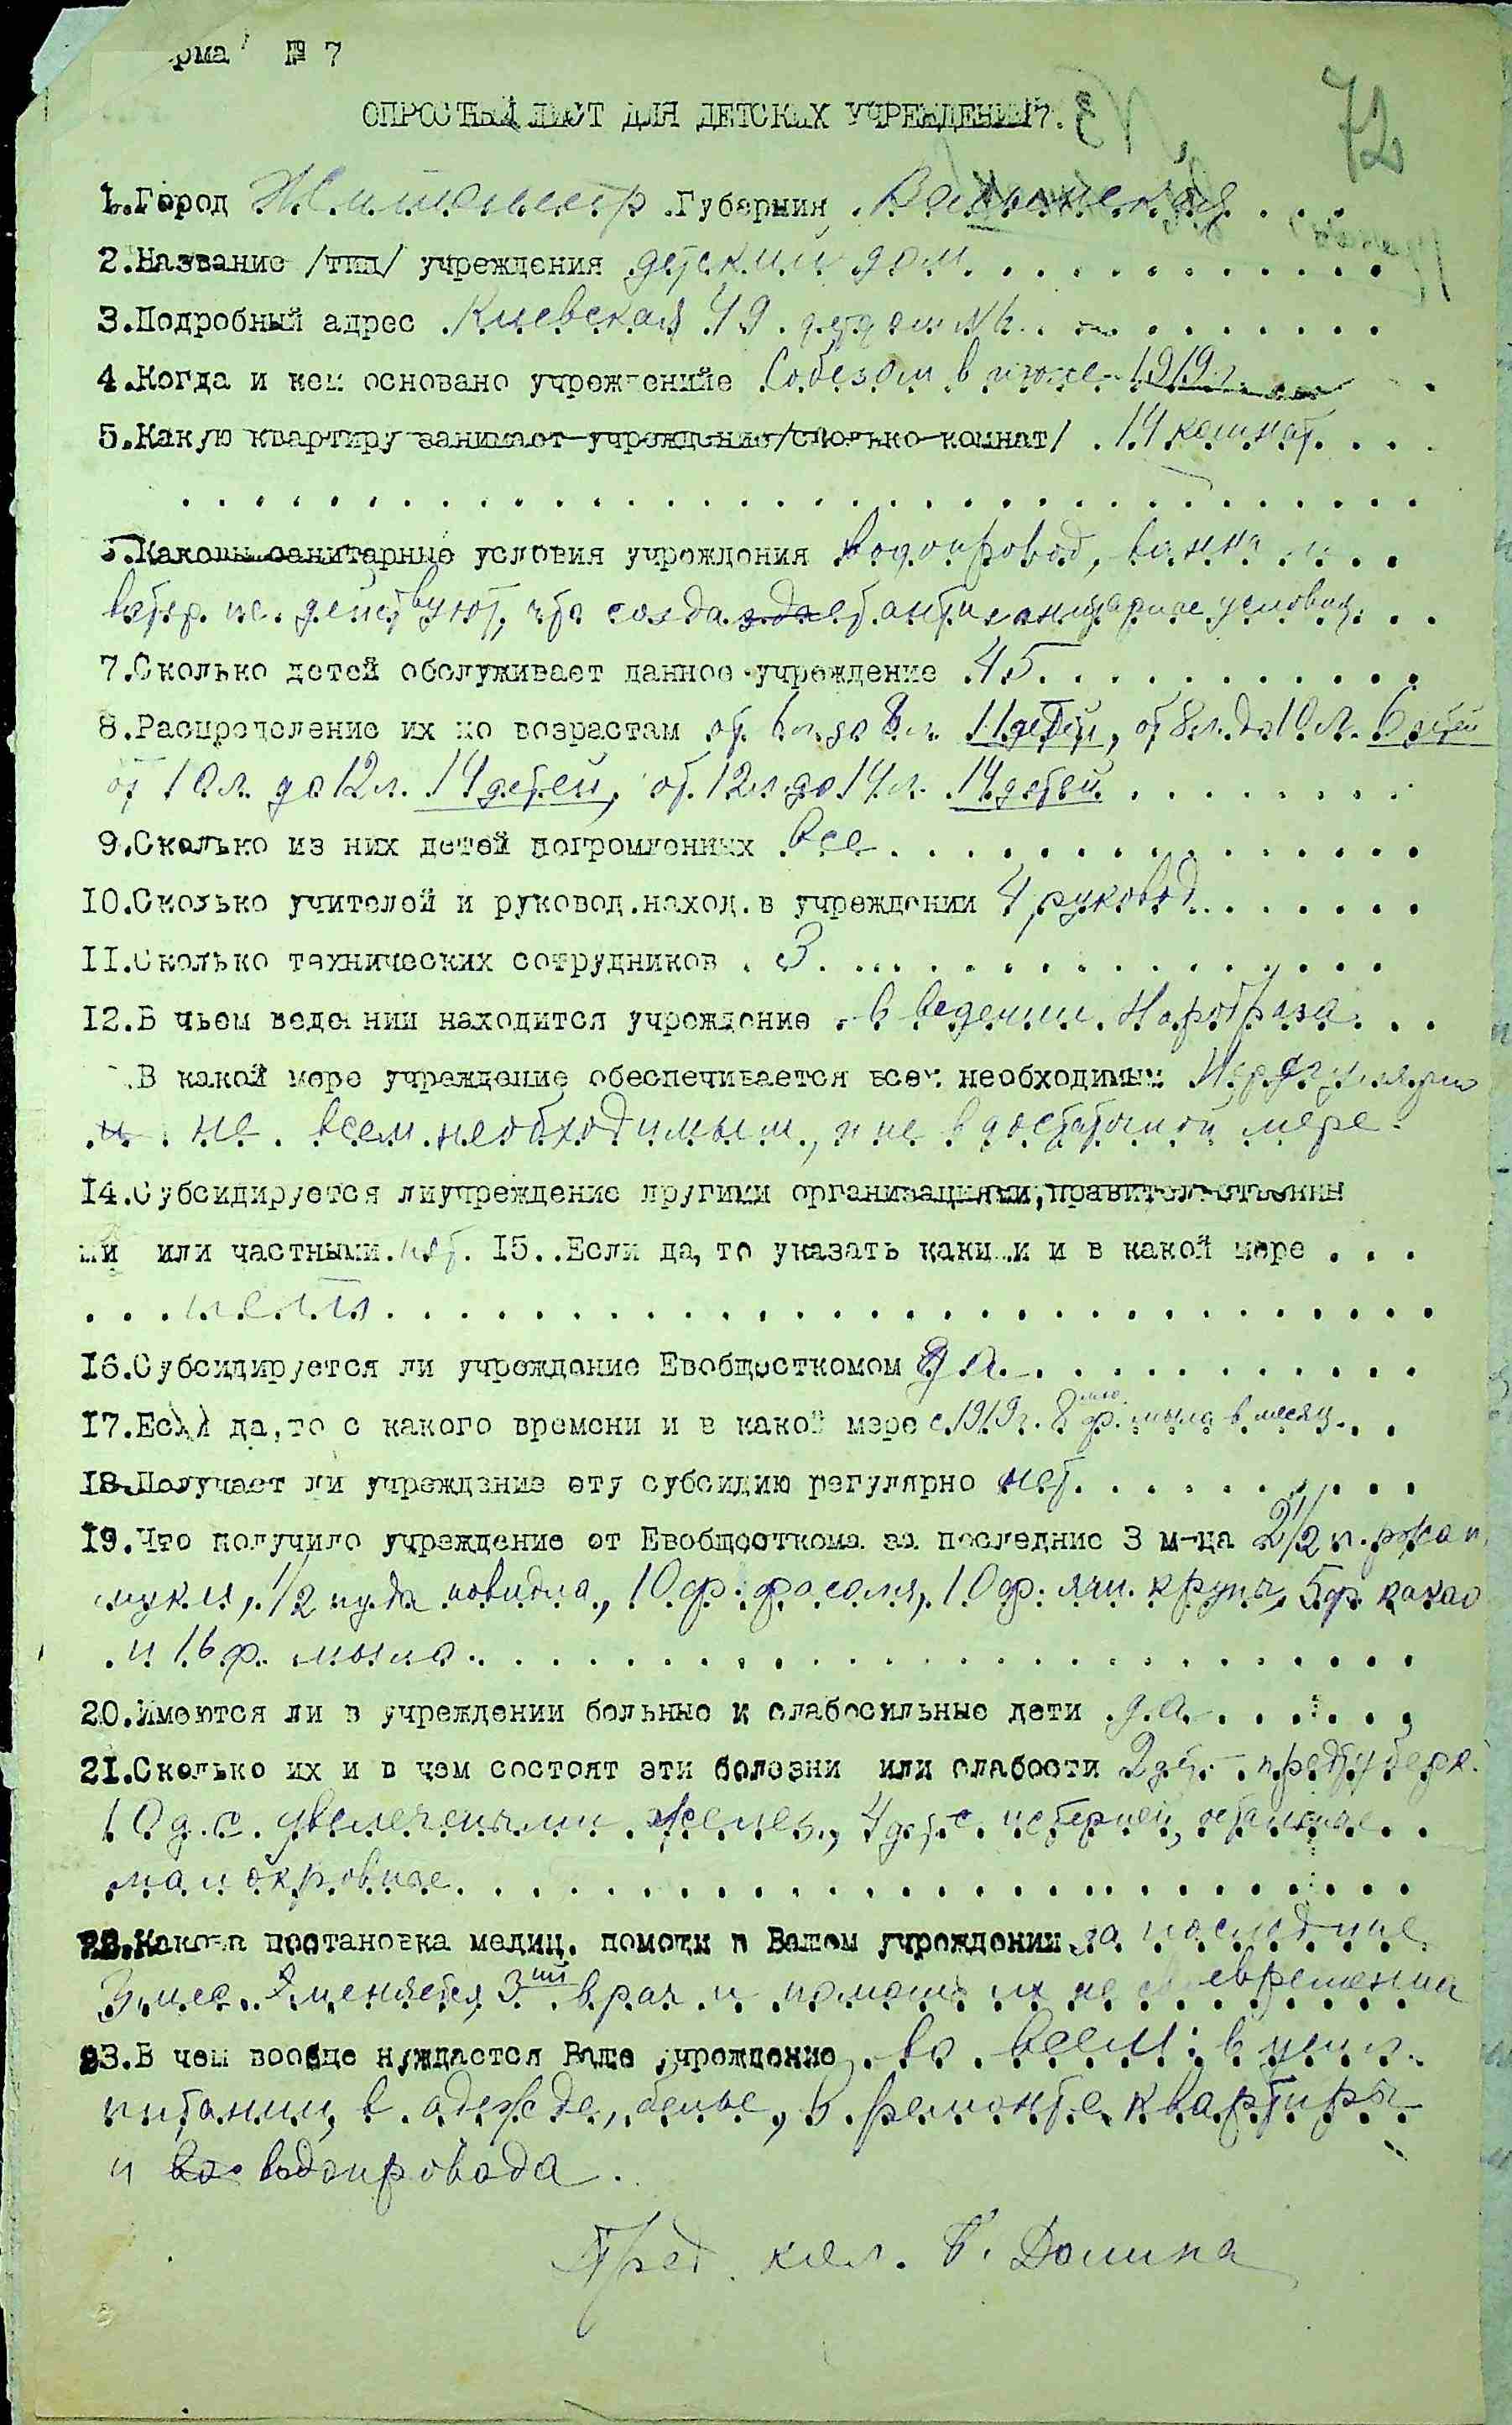 рма № 7
72
ОПРОСНЫЙ ЛИСТ ДЛЯ ДЕТСКИХ УЧРЕЖДЕНИЙ.
1.Город Житомир Губерния Волынская
2.Название /тип/ учреждения детский дом
3.Подробный адрес Киевская 49 детдом №
4.Когда и кем основано учреждениие Собезом в июне 1919 г.
5.Какую квартиру занимает учреждение/сколько комнат/ 14 комнат
.Каковы санитарные условия учреждения водопровод, ванна и
ватер. не действуют, что создает антисанитарные условия.
7.Сколько детей обслуживает данное учреждение 45
8.Распределение их по возрастам от 6 л. до 8 л. 11 детей, от 8 л. до 10 л. 6 детей
от 10 л. до 12 л. 14 детей, от 12 л. до 14 л. 14 детей
9.Сколько из них детей погромленных все
10.Сколько учителей и руковод.наход.в учреждении 4 руковод.
11.Сколько технических сотрудников 3
12.В чьем ведении находится учреждение в ведении Наробраза
.В какой мере учреждение обеспечивается всем необходимым Нерегулярно
и не всем необходимым, и не в достаточной мере
14.Субсидируется лиучреждение другими организациями,правительственны
ми или частными. нет. 15..Если да,то указать какими и в какой мере
нет
16.Субсидируется ли учреждение Евобщесткомом да
17.Если да,то с какого времени и в какой мере с 1919 г. 8 ф. мыла в месяц
18.Получает ли учреждение эту субсидию регулярно нет
19.Что получило учреждение от Евобщесткома за последние 3 м-ца 2 1/2 п. ржан.
муки, 1/2 пуда повидла, 10 ф. фасоли, 10 ф. ячн. крупы, 5 ф. какао
и 16 ф. мыла
20.Имеются ли в учреждении больные и слабосильные дети да
21.Сколько их и в чем состоят эти болезни или слабости 2 дет. предтуберк.
10 д. с увеличеными желез., 4 дет. с истерией, остальные
малокровные
22.Какова постановка медиц. помощи в Вашем учреждении за последние
3 мес. меняется 3ий врач и помощь их не своевременна
23.В чем вообще нуждается Ваше учреждение во всем: в усил.
питании, в одежде, белье, в ремонте квартиры
и водопровода.
Пред. кол. Б. Долина